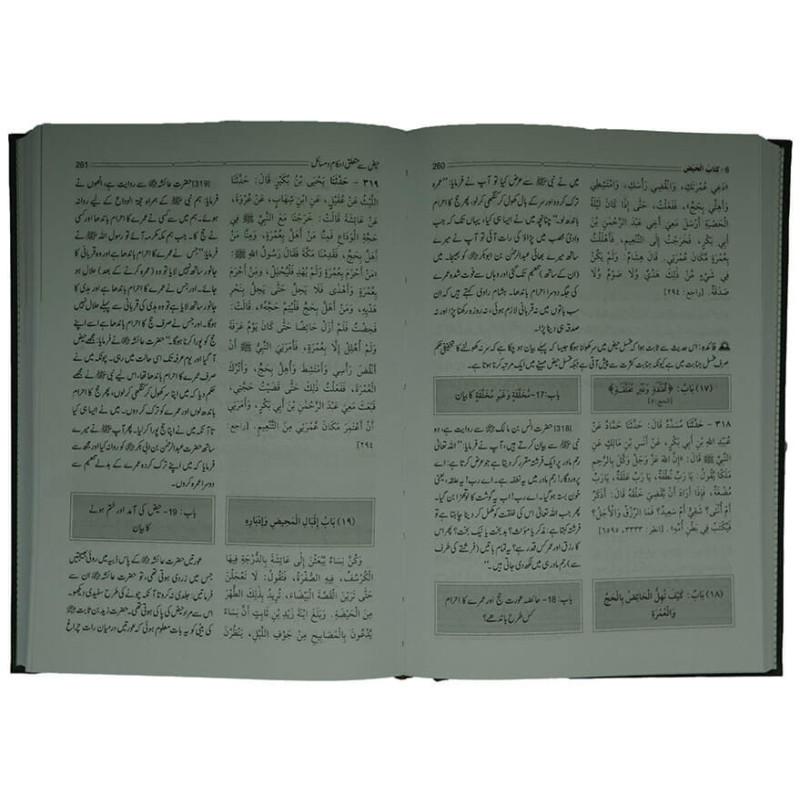 6 - كتاب الحيض
260
«دَعِي عُمْرَتَكِ، وَانْقُضِي رَأْسَكِ، وَامْتَشِطِي
وَأَهِلِّي بِحَجٍّ»، فَفَعَلْتُ، حَتَّى إِذَا كَانَ لَيْلَةُ
الْحَصْبَةِ أَرْسَلَ مَعِي أَخِي عَبْدَ الرَّحْمٰنِ بْنَ
أَبِي بَكْرٍ، فَخَرَجْتُ إِلَى التَّنْعِيمِ، فَأَهْلَلْتُ
بِعُمْرَةٍ مَكَانَ عُمْرَتِي. قَالَ هِشَامٌ: وَلَمْ يَكُنْ
فِي شَيْءٍ مِنْ ذٰلِكَ هَدْيٌ وَلَا صَوْمٌ وَلَا
صَدَقَةٌ. [راجع: ٢٩٤]
میں نے نبی ﷺ سے عرض کیا تو آپ نے فرمایا: "عمرہ
ترک کر دو، سر کے بال کھول کر کنگھی کر لو، پھر حج کا احرام
باندھ لو۔" چنانچہ میں نے ایسا ہی کیا، یہاں تک کہ جب
وادی محصب میں پڑاؤ کی رات آئی تو آپ نے میرے
ساتھ میرے بھائی عبدالرحمٰن بن ابوبکر کو بھیجا، میں
(ان کے ساتھ) تنعیم تک گئی اور وہاں سے فوت شدہ عمرے
کی جگہ دوسرا احرام باندھا۔ ہشام راوی کہتے ہیں کہ ان
سب باتوں میں نہ قربانی لازم ہوئی، نہ روزہ رکھنا پڑا اور نہ
صدقہ ہی دینا پڑا۔
فائدہ: اس حدیث سے ثابت ہوا کہ غسل حیض میں سر کھولنا ہوگا جیسا کہ پہلے بیان ہو چکا ہے کہ سر نہ کھولنے کا تخفیفی حکم
صرف غسل جنابت میں ہے کیونکہ جنابت کثرت سے پیش آتی ہے جبکہ غسل حیض مہینے میں ایک مرتبہ کرنا ہوتا ہے۔
(١٧) بَابٌ: ﴿مُّخَلَّقَةٍ وَغَيْرِ مُخَلَّقَةٍ﴾
[الحج:٥]
باب:17- مُخَلَّقَةٍ وَغَيْرِ مُخَلَّقَةٍ کا بیان
٣١٨ - حَدَّثَنَا مُسَدَّدٌ قَالَ: حَدَّثَنَا حَمَّادٌ عَنْ
عُبَيْدِ اللهِ بْنِ أَبِي بَكْرٍ، عَنْ أَنَسِ بْنِ مَالِكٍ عَنِ
النَّبِيِّ ﷺ قَالَ: «إِنَّ اللهَ عَزَّ وَجَلَّ وَكَّلَ بِالرَّحِمِ
مَلَكًا يَقُولُ: يَا رَبِّ نُطْفَةٌ، يَا رَبِّ عَلَقَةٌ، يَا رَبِّ
مُضْغَةٌ، فَإِذَا أَرَادَ أَنْ يَقْضِيَ خَلْقَهُ قَالَ: أَذَكَرٌ
أَمْ أُنْثَى؟ شَقِيٌّ أَمْ سَعِيدٌ؟ فَمَا الرِّزْقُ وَالْأَجَلُ؟
فَيُكْتَبُ فِي بَطْنِ أُمِّهِ». [انظر: ٣٣٣٣، ٦٥٩٥]
[318] حضرت انس بن مالک ﷛ سے روایت ہے، وہ
نبی ﷺ سے بیان کرتے ہیں، آپ نے فرمایا: "اللہ تعالیٰ
رحم مادر پر ایک فرشتہ مقرر کر دیتا ہے جو عرض کرتا ہے: اے
پروردگار! رحم مادر میں یہ نطفہ ہے، اے رب! یہ علقہ، یعنی
خون بستہ ہو گیا۔ اے رب! اب یہ گوشت کا لوتھڑا بن گیا۔
پھر جب اللہ تعالیٰ اس کی خلقت کو مکمل کر دینا چاہتا ہے تو
فرشتہ کہتا ہے: مذکر یا مؤنث؟ بدبخت یا نیک بخت؟ پھر اس
کا رزق اور عمر کس قدر ہے؟ یہ تمام باتیں (فرشتے کی طرف
سے) رحم مادر ہی میں لکھ دی جاتی ہیں۔"
(١٨) بَابٌ: كَيْفَ تُهِلُّ الْحَائِضُ بِالْحَجِّ
وَالْعُمْرَةِ
باب:18- حائضہ عورت حج اور عمرے کا احرام
کس طرح باندھے؟
حیض سے متعلق احکام و مسائل
261
٣١٩ - حَدَّثَنَا يَحْيَى بْنُ بُكَيْرٍ قَالَ: حَدَّثَنَا
اللَّيْثُ عَنْ عُقَيْلٍ، عَنِ ابْنِ شِهَابٍ، عَنْ عُرْوَةَ،
عَنْ عَائِشَةَ قَالَتْ: خَرَجْنَا مَعَ النَّبِيِّ ﷺ فِي
حَجَّةِ الْوَدَاعِ فَمِنَّا مَنْ أَهَلَّ بِعُمْرَةٍ، وَمِنَّا مَنْ
أَهَلَّ بِحَجٍّ، فَقَدِمْنَا مَكَّةَ فَقَالَ رَسُولُ اللهِ ﷺ:
«مَنْ أَحْرَمَ بِعُمْرَةٍ وَلَمْ يُهْدِ فَلْيُحْلِلْ، وَمَنْ أَحْرَمَ
بِعُمْرَةٍ وَأَهْدَى فَلَا يَحِلُّ حَتَّى يَحِلَّ بِنَحْرِ
هَدْيِهِ، وَمَنْ أَهَلَّ بِحَجٍّ فَلْيُتِمَّ حَجَّهُ»، قَالَتْ:
فَحِضْتُ فَلَمْ أَزَلْ حَائِضًا حَتَّى كَانَ يَوْمُ عَرَفَةَ
وَلَمْ أُهْلِلْ إِلَّا بِعُمْرَةٍ، فَأَمَرَنِي النَّبِيُّ ﷺ أَنْ
أَنْقُضَ رَأْسِي وَأَمْتَشِطَ وَأُهِلَّ بِحَجٍّ، وَأَتْرُكَ
الْعُمْرَةَ، فَفَعَلْتُ ذٰلِكَ حَتَّى قَضَيْتُ حَجِّي،
فَبَعَثَ مَعِي عَبْدَ الرَّحْمٰنِ بْنَ أَبِي بَكْرٍ، وَأَمَرَنِي
أَنْ أَعْتَمِرَ مَكَانَ عُمْرَتِي مِنَ التَّنْعِيمِ. [راجع:
٢٩٤]
[319] حضرت عائشہ ﷞ سے روایت ہے، انھوں نے
فرمایا: ہم نبی ﷺ کے ہمراہ حجۃ الوداع کے لیے روانہ
ہوئے۔ ہم میں سے کسی نے عمرے کا احرام باندھا اور کسی
نے حج کا۔ جب ہم مکہ مکرمہ آئے تو رسول اللہ ﷺ نے
فرمایا: "جس نے عمرے کا احرام باندھا ہے اور وہ قربانی کا
جانور ساتھ نہیں لایا تو وہ (عمرہ کرنے کے بعد) حلال ہو
جائے۔ اور جس نے عمرے کا احرام باندھا ہے اور ہدی کا
جانور ساتھ لایا ہے تو وہ ہدی کی قربانی سے پہلے حلال نہیں
ہوگا۔ اور جس نے صرف حج کا احرام باندھا ہے اسے اپنے
حج کو پورا کرنا ہوگا۔" حضرت عائشہ نے فرمایا: مجھے حیض
آ گیا اور یوم عرفہ تک اسی حالت میں رہی۔ چونکہ میں نے
صرف عمرے کا احرام باندھا تھا، اس لیے نبی ﷺ نے مجھے
حکم دیا کہ میں اپنا سر کھول کر کنگھی کر لوں، پھر حج کا احرام
باندھ لوں اور عمرے کو ترک کر دوں۔ میں نے ایسا ہی کیا
تا آنکہ میں نے اپنا حج پورا کر لیا۔ پھر آپ ﷺ نے میرے
ساتھ حضرت عبدالرحمٰن بن ابی بکر کو روانہ کیا اور مجھ سے
فرمایا کہ میں اپنے ترک کردہ عمرے کے بدلے تنعیم سے
دوسرا عمرہ کروں۔
(١٩) بَابُ إِقْبَالِ الْمَحِيضِ وَإِدْبَارِهِ
باب: 19- حیض کی آمد اور ختم ہونے
کا بیان
وَكُنَّ نِسَاءٌ يَبْعَثْنَ إِلَى عَائِشَةَ بِالدُّرْجَةِ فِيهَا
الْكُرْسُفُ، فِيهِ الصُّفْرَةُ، فَتَقُولُ: لَا تَعْجَلْنَ
حَتَّى تَرَيْنَ الْقَصَّةَ الْبَيْضَاءَ، تُرِيدُ بِذٰلِكَ الطُّهْرَ
مِنَ الْحَيْضَةِ. وَبَلَغَ ابْنَةَ زَيْدِ بْنِ ثَابِتٍ أَنَّ نِسَاءً
يَدْعُونَ بِالْمَصَابِيحِ مِنْ جَوْفِ اللَّيْلِ، يَنْظُرْنَ
عورتیں حضرت عائشہ ﷞ کے پاس ڈبیہ میں روئی بھیجتیں
جس میں زردی ہوتی تھی، تو حضرت عائشہ ﷞
فرماتیں: جلدی نہ کرو تا آنکہ چونے کی طرح سفیدی دیکھو۔
اس سے مراد حیض کی پاکی ہوتی تھی۔ حضرت زید بن ثابت
کی بیٹی کو یہ بات معلوم ہوئی کہ عورتیں درمیان رات چراغ